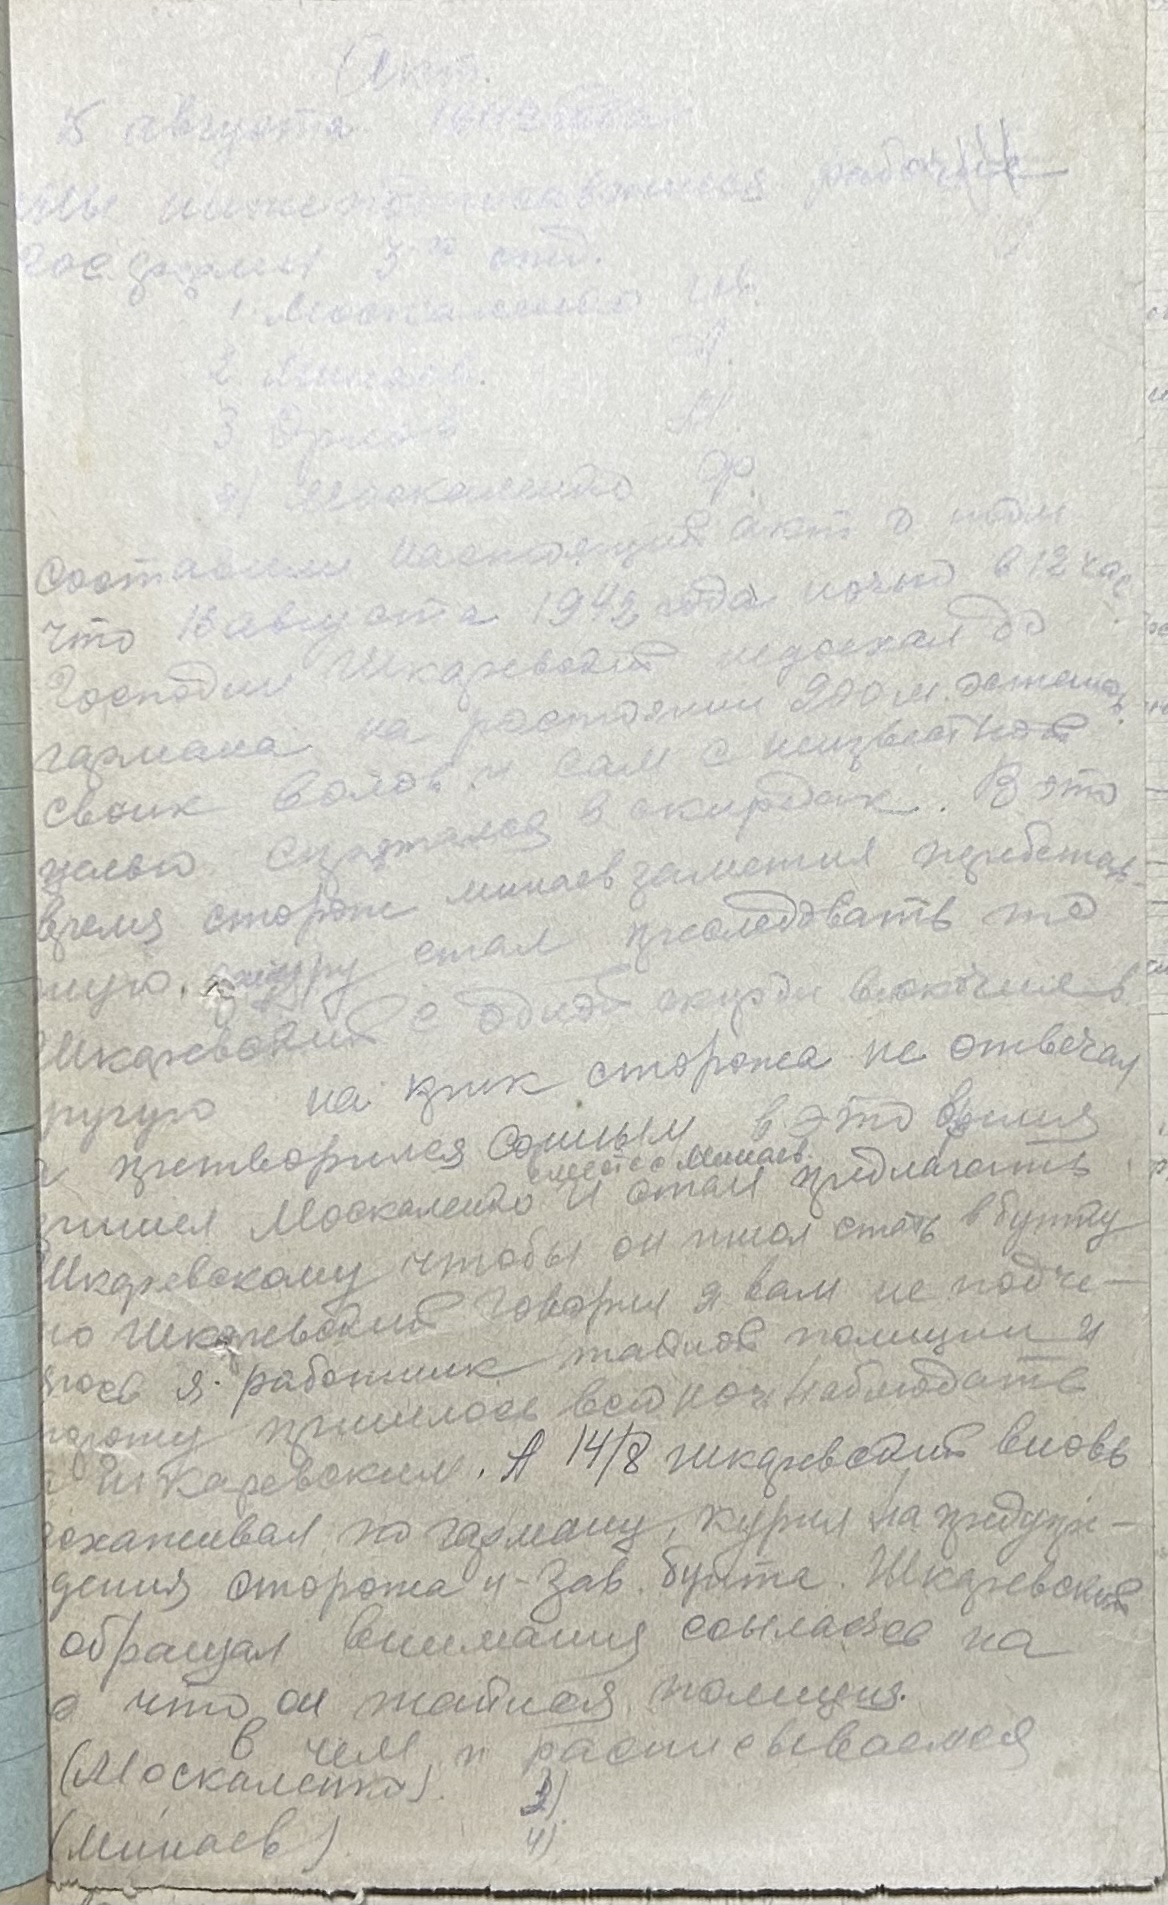 Акт.
15 августа 1942 года
Мы нижеподписавшиеся рабочие
госфамы 3го отд.
1 Москаленко Ив.
2 Минаев.
3
4) Москаленко Ф.
Составили настоящий акт о том
что 13 августа 1942 года ночью в 12 час
Господин Шкаревский недоехал до
гармана на растоянии 200 м. остановив
своих волов и сам с неизвестной
целью спрятался в скирдах. В это
время сторож минаев заметил перебегаю-
щую. фигуру стал преследовать то
Шкаревский с одной скирды вскочил в
ругую на крик сторожа не отвечал
и притворился сонным в это время
вместе с Минаев.
ришел Москаленко и стал предлагать
Шкаревскому чтобы он пшол спать в будку
но Шкаревский говорил я вам не подче-
нюсь я работник тайной полиции и
поэтому пришлось всю ноч наблюдать
а Шкаревским. А 14/8 шкаревский вновь
охаживал по гарману, курил на предупре-
дения сторожа и зав. бунта. Шкаревский
обращал внимания ссылаясь на
о что он тайная полиция.
в чем и расписываемся
(Москаленко). 3)
(Минаев) 4)